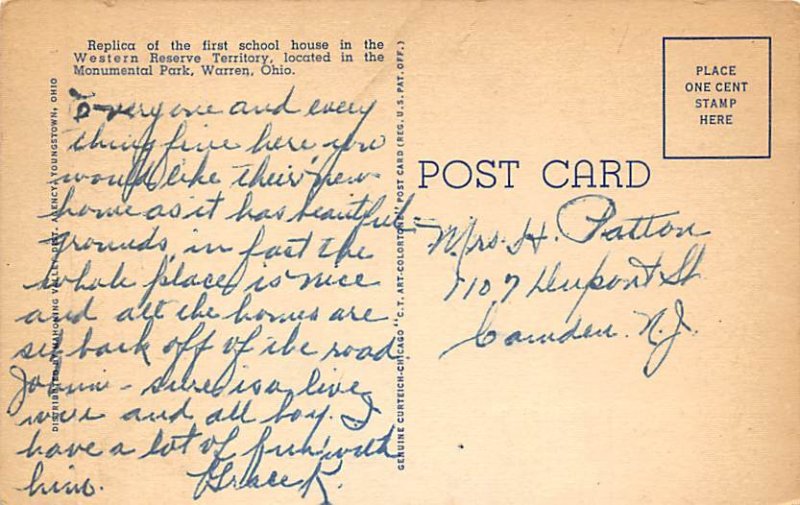 Replica of the first school house in the
Western Reserve Territory, located in the
Monumental Park, Warren, Ohio.
Everyone and every
thing fine here you
would like their new
home as it has beautiful
grounds, in fact the
whole place is nice
and all the homes are
set back off of the road.
sure is a live
wire and all boy. I
have a lot of fun with
him. Grace K.
DISTRIBUTED BY MAHONING VALLEY DIST. AGENCY, YOUNGSTOWN, OHIO
GENUINE CURTEICH-CHICAGO "C.T. ART-COLORTONE" POST CARD (REG. U.S. PAT. OFF.)
POST CARD
PLACE
ONE CENT
STAMP
HERE
Mrs. H. Patton
1107 Dupont St
Camden. N.J.